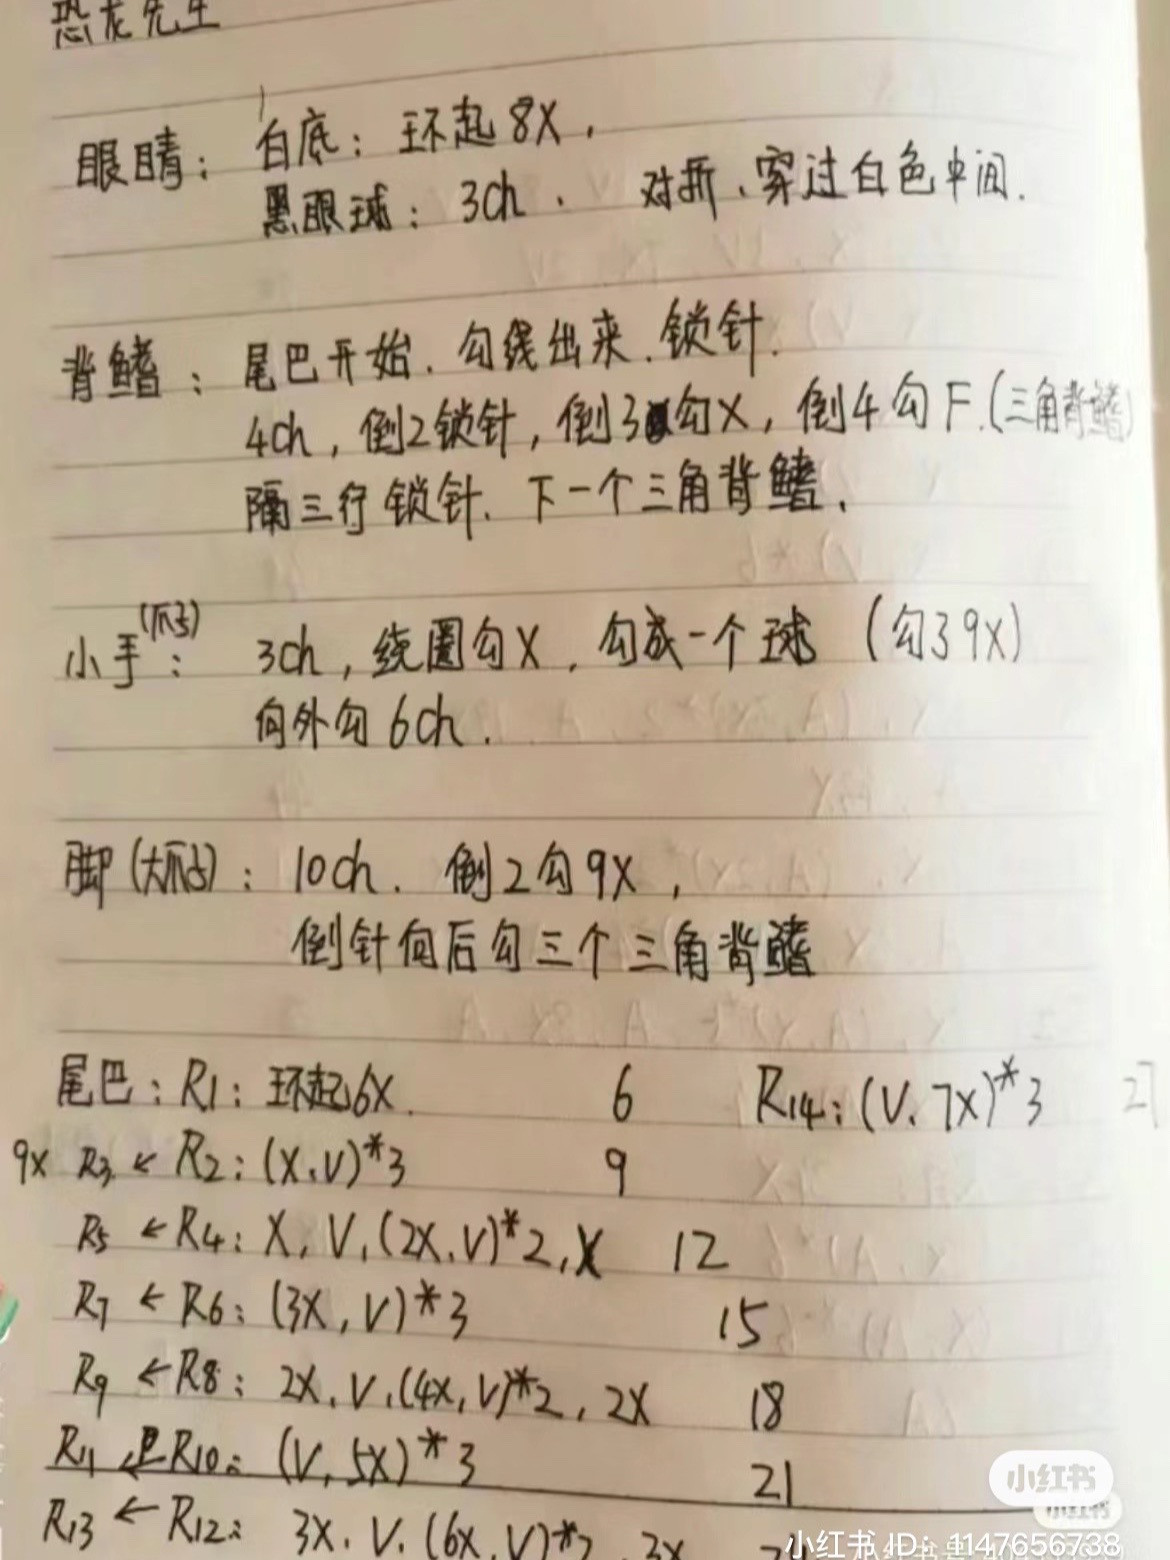 恐龙先生
眼睛： 白底：环起8X，
黑眼球：3ch. 对折、穿过白色中间.
背鳍：尾巴开始.勾线出来.锁针.
4ch，倒2锁针，倒3勾X，倒4勾F.(三角背鳍)
隔三行锁针.下一个三角背鳍.
小手(爪子)： 3ch，绕圈勾X，勾成一个球 (勾39X)
向外勾6ch.
脚(大爪子)： 10ch. 倒2勾9X，
倒针向后勾三个三角背鳍
尾巴：R1：环起6X. 6 R14：(V.7X)*3 27
9X R3 ← R2：(X.V)*3 9
R5 ← R4：X，V，(2X.V)*2，X 12
R7 ← R6：(3X，V)*3 15
R9 ← R8：2X.V.(4X，V)*2，2X 18
R11 ← R10：(V，5X)*3 21
R13 ← R12： 3X.V.(6X.V)*2 3X
小红书
小红书
小红书 ID：1147656738